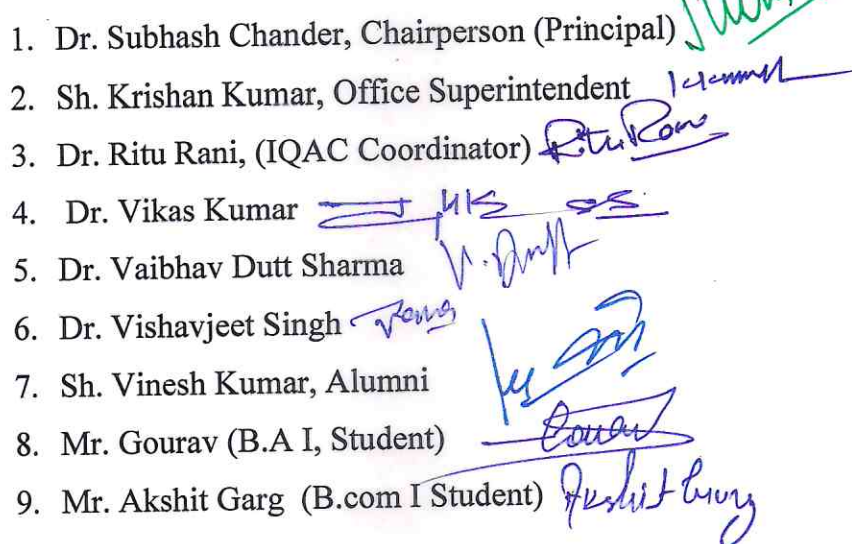 1. Dr. Subhash Chander, Chairperson (Principal)
2. Sh. Krishan Kumar, Office Superintendent
3. Dr. Ritu Rani, (IQAC Coordinator) Ritu Rani
4. Dr. Vikas Kumar
5. Dr. Vaibhav Dutt Sharma
6. Dr. Vishavjeet Singh
7. Sh. Vinesh Kumar, Alumni
8. Mr. Gourav (B.A I, Student)
9. Mr. Akshit Garg (B.com I Student) Akshit Garg